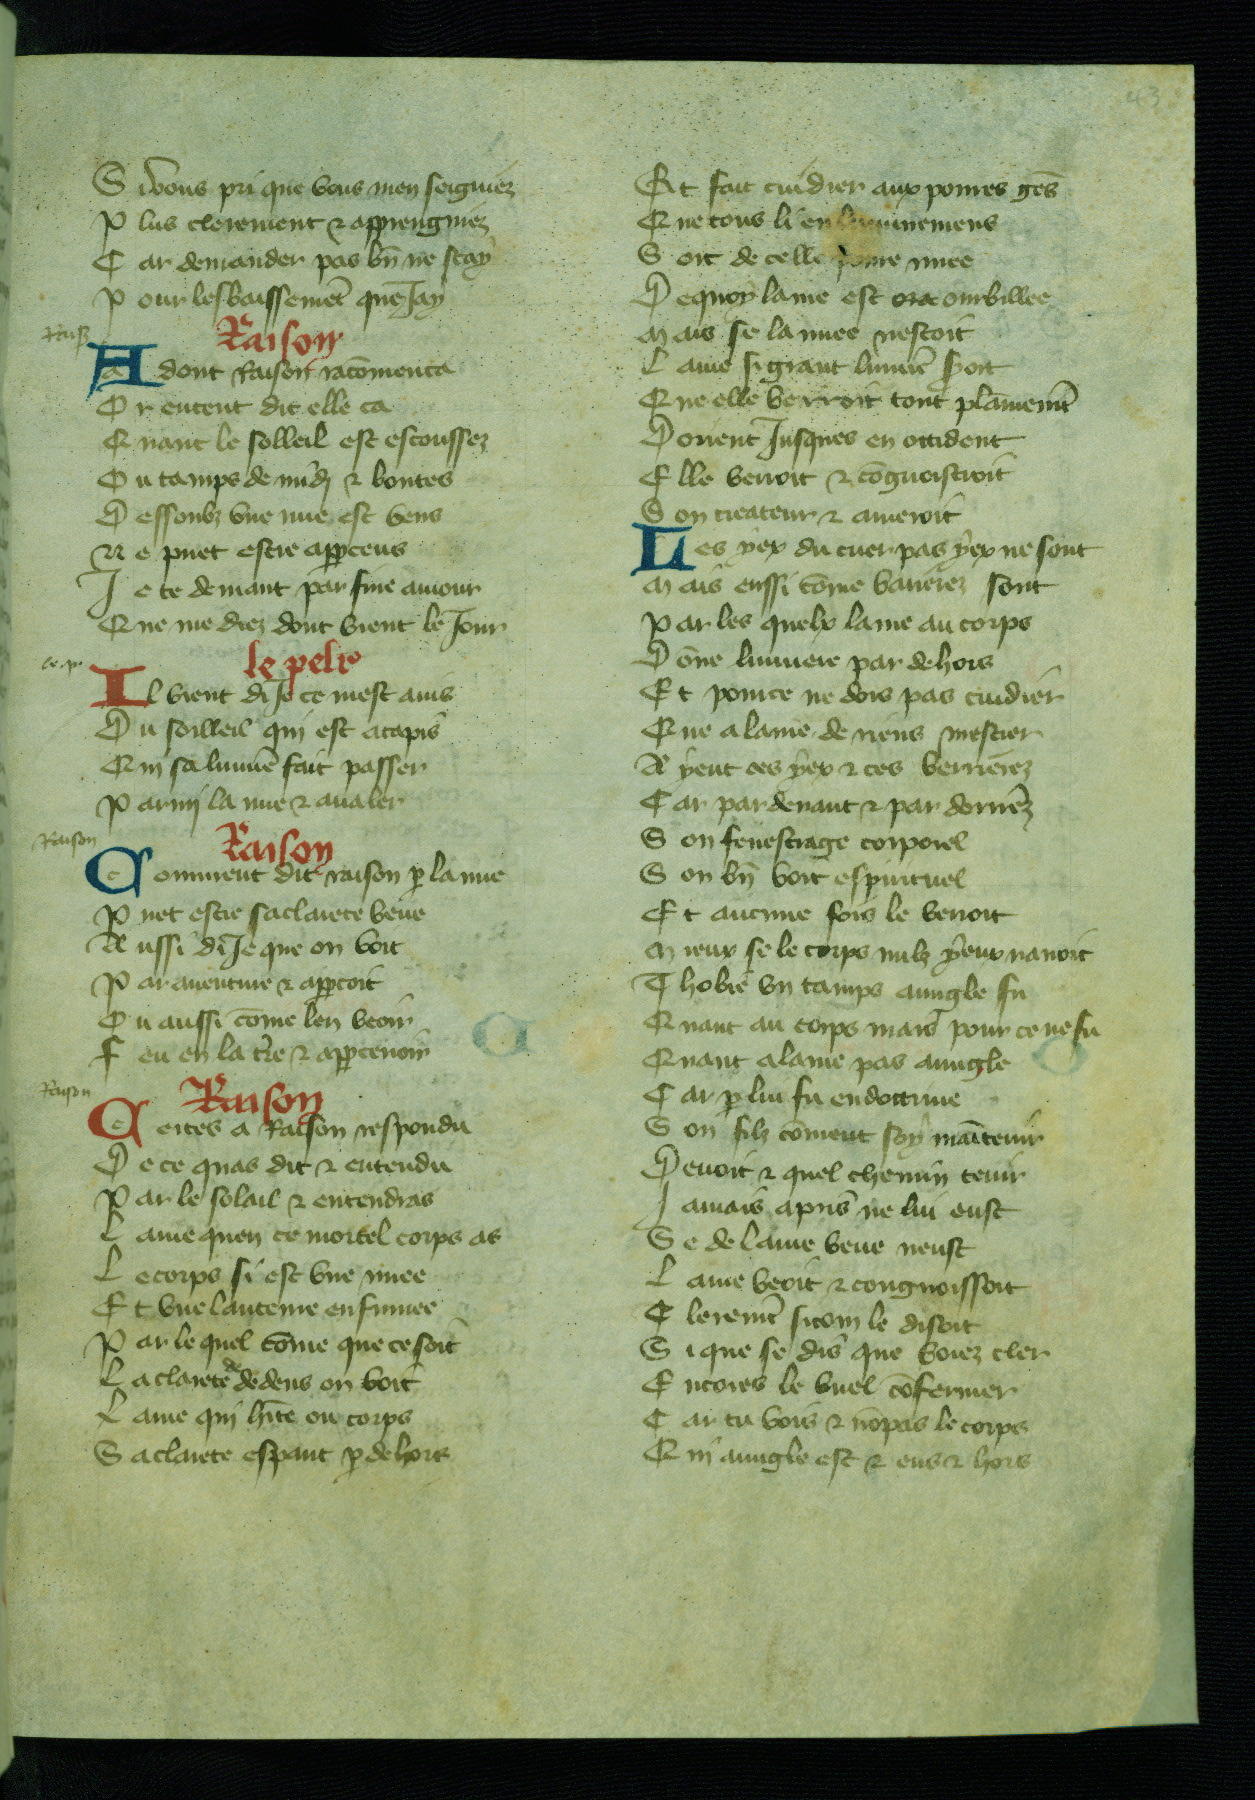 43
S i vous pri que vous men seigniez
P lus clerement & apprengniez
C ar demander pas bn̄ ne scay
P our lesbaissemēt que Jay
Raison
Raison
A dont Raison racōmenca
O r entent dit elle ca
Q uant le solleil est escoussez
O u tamps de midj & boutes
D essoubz vne nue est vens
N e puet estre apperceus
J e te demant par fine amour
Q ue me diez dont vient le Jour
le p
le pelr
I l vient di Je ce mest auis
D u soilleil qui est atapis
Q ui sa lumiē fait passer
P armj la nue & aualer
Raison
Raison
C omment dit raison p la nue
P uet estre sa clarete veue
A ussi di Je que on voit
P ar auenture & appcoit
O u aussi cōme len veoir
F eu en la tr̄e & appceuoir
Raison
Raison
C ertes a Raison respondu
D e ce quas dit & entendu
P ar le solail & entendras
L ame quen ce mortel corps as
L e corps si est vne nuee
E t vne lanterne enfumee
P ar le quel cōme que ce soit
L a clarete de dens on voit
L ame qui hīte ou corps
S a clarete espant p dehors
E t fait cuidier aux poures gēs
Q ue tous li enluminemens
S oit de celle poure nuee
D equoy lame est ora ombillee
M ais se la nuee nestoit
L ame si grant lumiē yoit
Q ue elle verroit tout plainemēt
D orient Jusques en occident
E lle verroit & cōgnoistroit
S on createur & ameroit
L es yex du cuer pas yex ne sont
M ais enssi cōme varierez sont
P ar les quelx lame au corps
D ōne lumiere par dehors
E t pource ne dois pas cuidier
Q ue a lame de riens mestier
A yent ces yex & ces verrierez
C ar par deuant & par derrierz
S on fenestrage corporel
S on bn̄ voit espirituel
E t aucune fois le verroit
M ieux se le corps nulz yeux nauoit
T hobie vn tamps auugle fu
Q uant au corps mais pour ce ne fu
Q uant a lame pas auugle
C ar p lui fu endottrine
S on filz cōment soy maītenir
D euoit & quel chemin tenir
J amais apris ne lui eust
S e de lame veue neust
L ame veoit & congnoissoit
C leremēt sicom le disoit
S i que se dis que voiez cler
E ncores le vuel cōfermer
C ar tu vois & nōpas le corps
Q ui auugle est & ens & hors